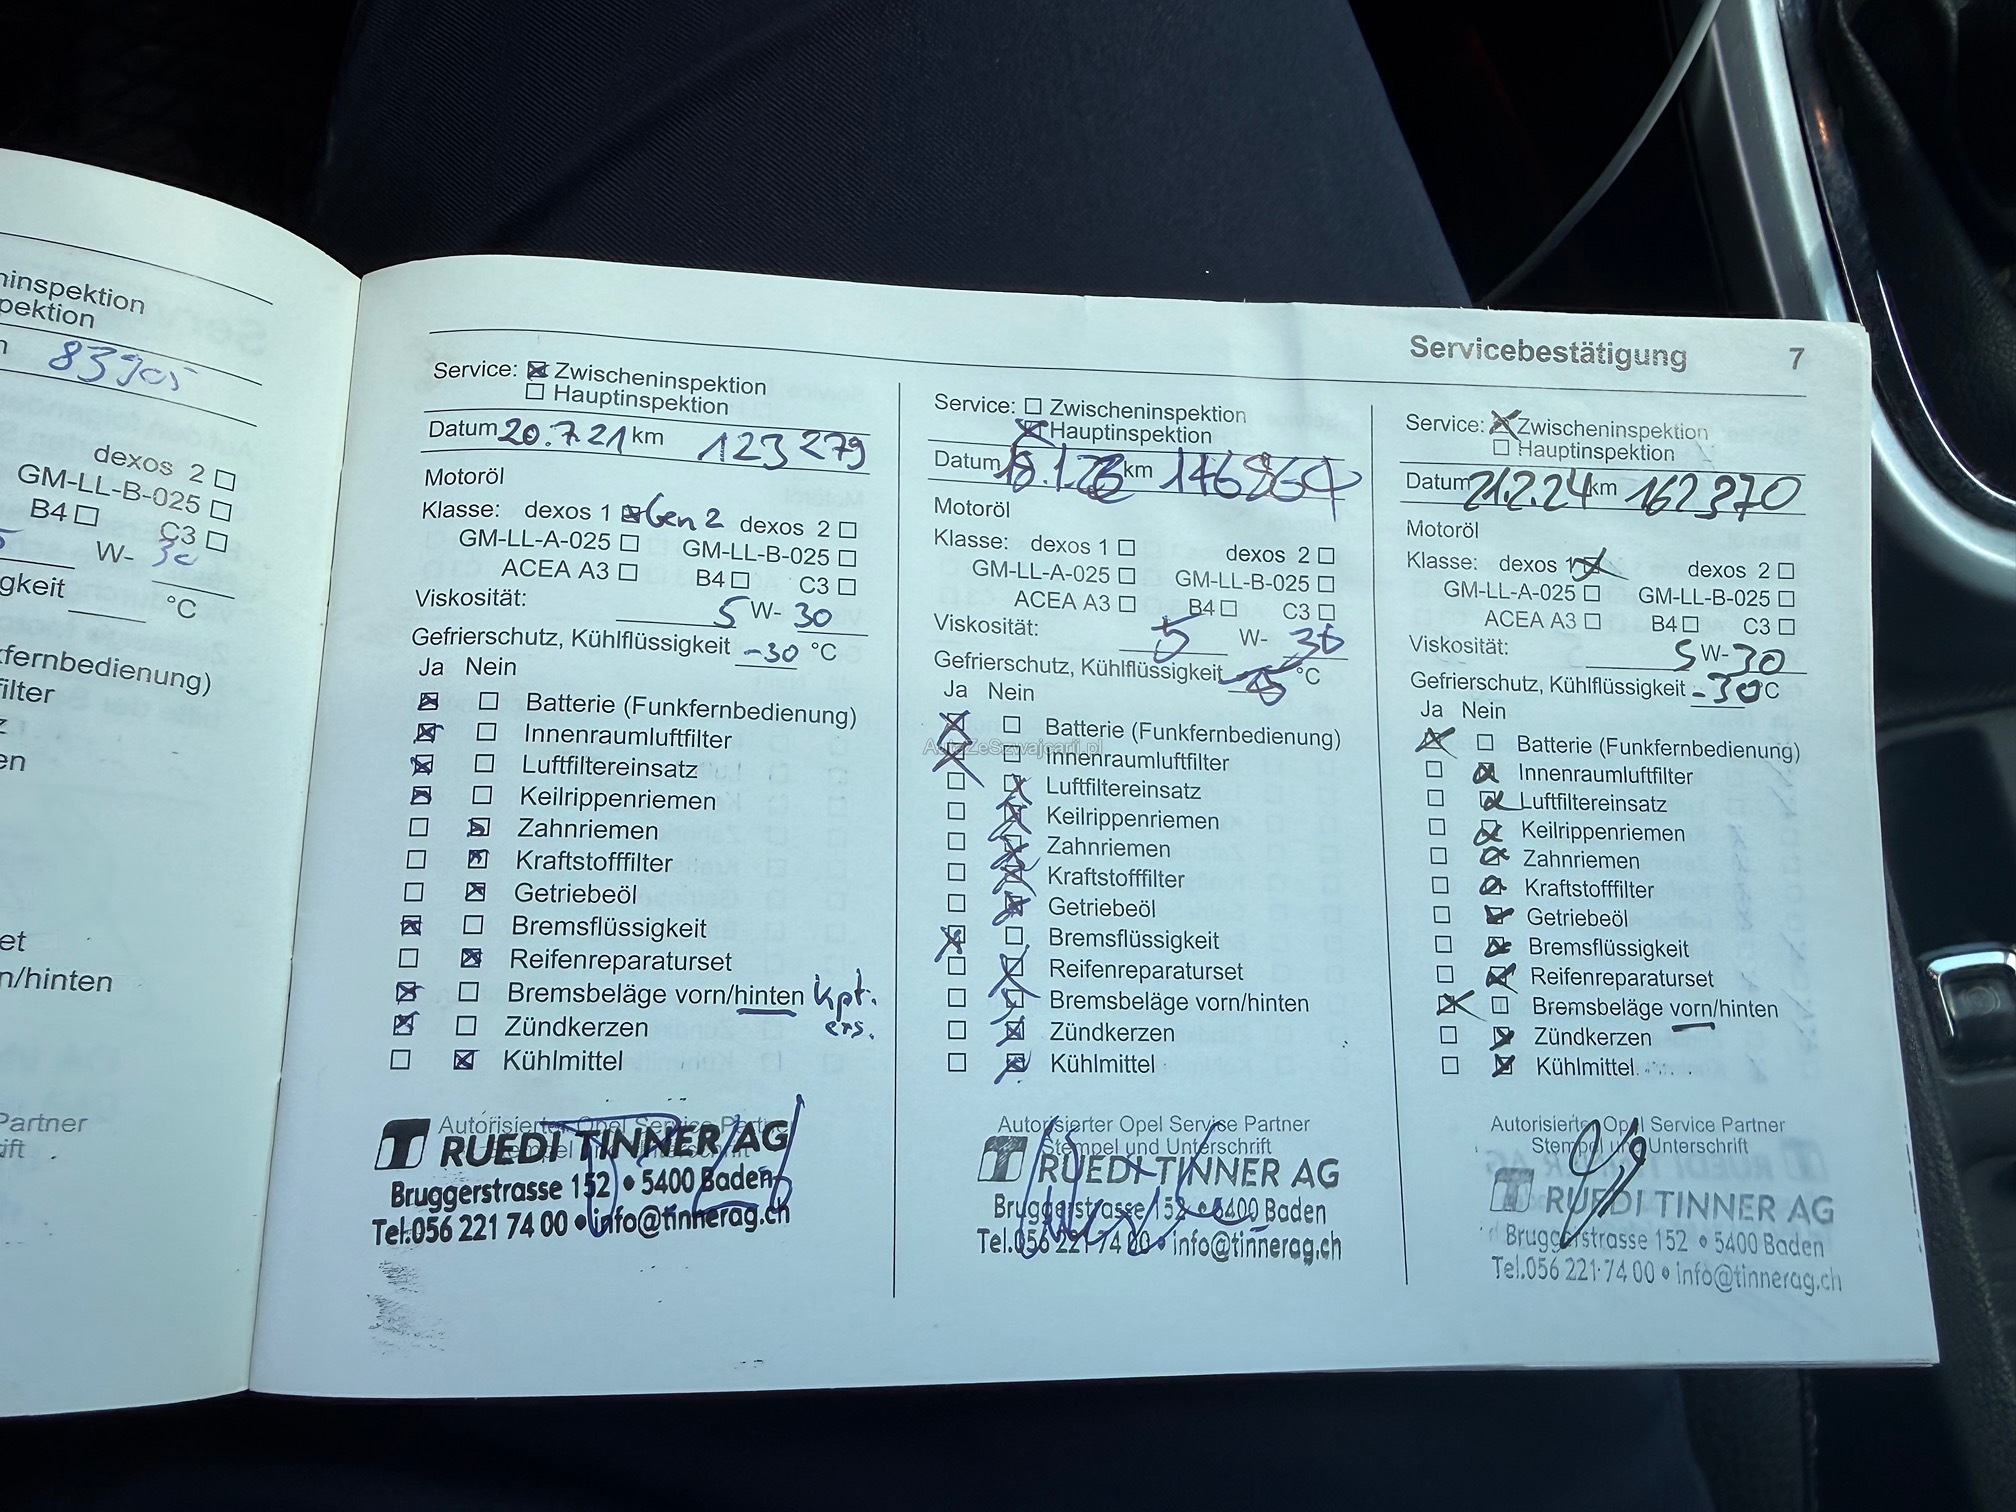 ninspektion
pektion
83905
dexos 2 ☐
GM-LL-B-025 ☐
B4 ☐ C3 ☐
W- 30
gkeit °C
kfernbedienung)
filter
en
et
n/hinten
Partner
ift
Servicebestätigung 7
Service: ☒ Zwischeninspektion
☐ Hauptinspektion
Datum 20.7.21 km 123279
Motoröl
Klasse: dexos 1 ☒ Gen 2 dexos 2 ☐
GM-LL-A-025 ☐ GM-LL-B-025 ☐
ACEA A3 ☐ B4 ☐ C3 ☐
Viskosität: 5 W- 30
Gefrierschutz, Kühlflüssigkeit -30 °C
Ja Nein
☒ ☐ Batterie (Funkfernbedienung)
☒ ☐ Innenraumluftfilter
☒ ☐ Luftfiltereinsatz
☒ ☐ Keilrippenriemen
☐ ☒ Zahnriemen
☐ ☒ Kraftstofffilter
☐ ☒ Getriebeöl
☒ ☐ Bremsflüssigkeit
☐ ☒ Reifenreparaturset
☒ ☐ Bremsbeläge vorn/hinten kpt.
ers.
☒ ☐ Zündkerzen
☐ ☒ Kühlmittel
Autorisierter Opel Service Partner
Stempel und Unterschrift
RUEDI TINNER AG
Bruggerstrasse 152 • 5400 Baden
Tel.056 221 74 00 • info@tinnerag.ch
Service: ☐ Zwischeninspektion
☒ Hauptinspektion
Datum km
Motoröl
Klasse: dexos 1 ☐ dexos 2 ☐
GM-LL-A-025 ☐ GM-LL-B-025 ☐
ACEA A3 ☐ B4 ☐ C3 ☐
Viskosität: 5 W- 30
Gefrierschutz, Kühlflüssigkeit °C
Ja Nein
☒ ☐ Batterie (Funkfernbedienung)
AutaZeSzwajcarii.pl
☒ ☐ Innenraumluftfilter
☐ ☒ Luftfiltereinsatz
☐ ☒ Keilrippenriemen
☐ ☒ Zahnriemen
☐ ☒ Kraftstofffilter
☐ ☒ Getriebeöl
☒ ☐ Bremsflüssigkeit
☐ ☒ Reifenreparaturset
☐ ☒ Bremsbeläge vorn/hinten
☐ ☒ Zündkerzen
☐ ☒ Kühlmittel
Autorisierter Opel Service Partner
Stempel und Unterschrift
RUEDI TINNER AG
Bruggerstrasse 152 • 5400 Baden
Tel.056 221 74 00 • info@tinnerag.ch
Service: ☒ Zwischeninspektion
☐ Hauptinspektion
Datum 21.2.24 km 162370
Motoröl
Klasse: dexos 1 ☒ dexos 2 ☐
GM-LL-A-025 ☐ GM-LL-B-025 ☐
ACEA A3 ☐ B4 ☐ C3 ☐
Viskosität: 5 W- 30
Gefrierschutz, Kühlflüssigkeit -30 °C
Ja Nein
☒ ☐ Batterie (Funkfernbedienung)
☐ ☒ Innenraumluftfilter
☐ ☒ Luftfiltereinsatz
☐ ☒ Keilrippenriemen
☐ ☒ Zahnriemen
☐ ☒ Kraftstofffilter
☐ ☒ Getriebeöl
☐ ☒ Bremsflüssigkeit
☐ ☒ Reifenreparaturset
☒ ☐ Bremsbeläge vorn/hinten
☐ ☒ Zündkerzen
☐ ☒ Kühlmittel
Autorisierter Opel Service Partner
Stempel und Unterschrift
RUEDI TINNER AG
Bruggerstrasse 152 • 5400 Baden
Tel.056 221 74 00 • info@tinnerag.ch